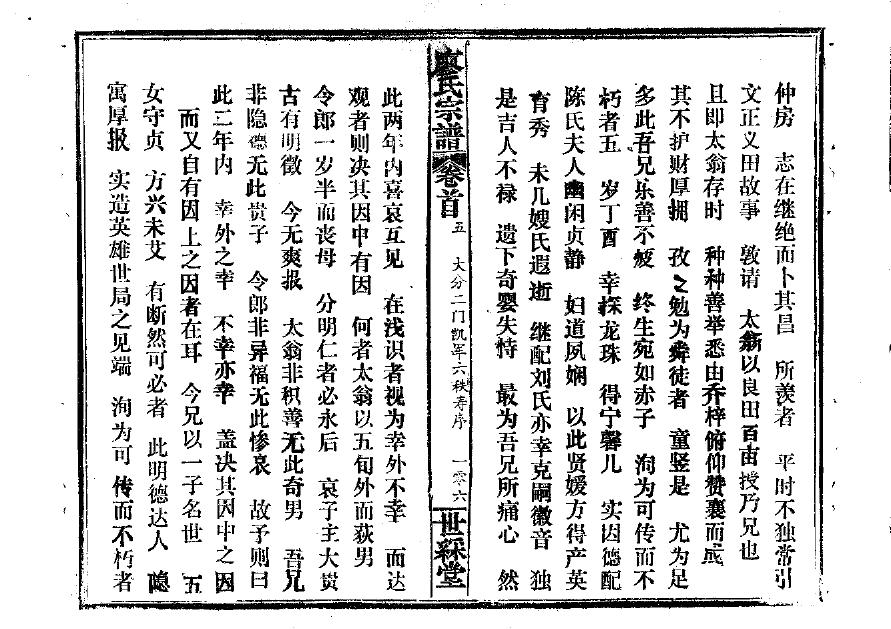 仲房 志在继绝而卜其昌 所羡者 平时不独常引
文正义田故事 敦请 太翁以良田百亩授乃兄也
且即太翁存时 种种善举悉由乔梓俯仰赞襄而成
其不护财厚拥 孜之勉为舜徒者 童竖是 尤为足
多此吾兄乐善不疲 终生宛如赤子 洵为可传而不
朽者五 岁丁酉 幸探龙珠 得宁馨儿 实因德配
陈氏夫人幽闲贞静 妇道夙娴 以此贤媛方得产英
育秀 未几嫂氏遐逝 继配刘氏亦幸克嗣徽音 独
是吉人不禄 遗下奇婴失恃 最为吾兄所痛心 然
廖氏宗譜 卷首 五 大分二门凯军六秩寿序 一零六 世綵堂
此两年内喜哀互见 在浅识者视为幸外不幸 而达
观者则决其因中有因 何者太翁以五旬外而获男
令郎一岁半而丧母 分明仁者必永后 哀子主大贵
古有明徵 今无爽报 太翁非积善无此奇男 吾兄
非隐德无此贵子 令郎非异福无此惨哀 故予则曰
此二年内 幸外之幸 不幸亦幸 盖决其因中之因
而又自有因上之因者在耳 今兄以一子名世 五
女守贞 方兴未艾 有断然可必者 此明德达人 隐
寓厚报 实造英雄世局之见端 洵为可传而不朽者